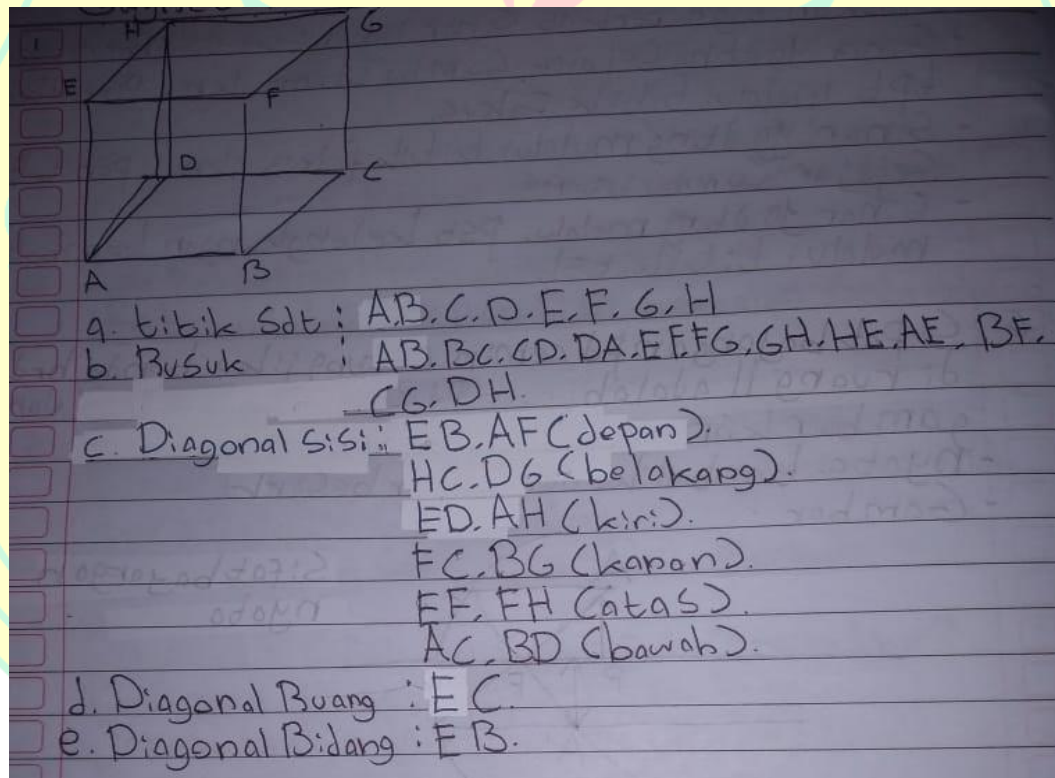 H G
E F
D C
A B
a. titik Sdt : A.B.C.D.E.F.G.H
b. Rusuk : AB.BC.CD.DA.EF.FG.GH.HE.AE. BF.
CG. DH.
c. Diagonal Sisi : EB.AF (depan).
HC.DG (belakang).
ED.AH (kiri).
FC.BG (kanan).
EF. FH (atas).
AC.BD (bawah).
d. Diagonal Ruang : EC.
e. Diagonal Bidang : EB.